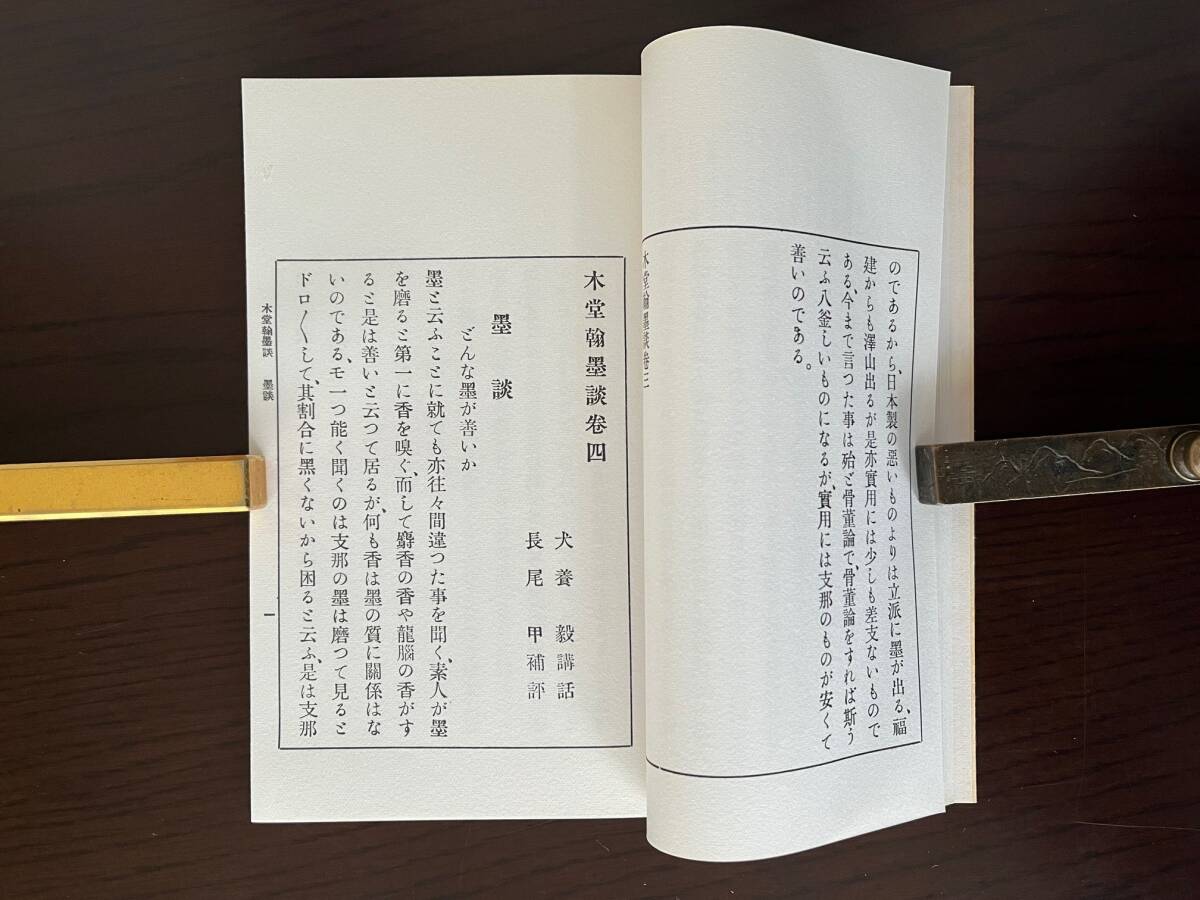 のであるから、日本製の悪いものよりは立派に墨が出る、福
建からも澤山出るが是亦實用には少しも差支ないもので
ある、今まで言つた事は殆ど骨董論で、骨董論をすれば斯う
云ふ八釜しいものになるが、實用には支那のものが安くて
善いのである。
木堂翰墨談卷三
木堂翰墨談卷四
犬養毅講話
長尾甲補評
墨談
どんな墨が善いか
墨と云ふことに就ても亦往々間違つた事を聞く、素人が墨
を磨ると第一に香を嗅ぐ、而して麝香の香や龍腦の香がす
ると是は善いと云つて居るが、何も香は墨の質に關係はな
いのである、モ一つ能く聞くのは支那の墨は磨つて見ると
ドロ〱して、其割合に黑くないから困ると云ふ、是は支那
木堂翰墨談 墨談
一